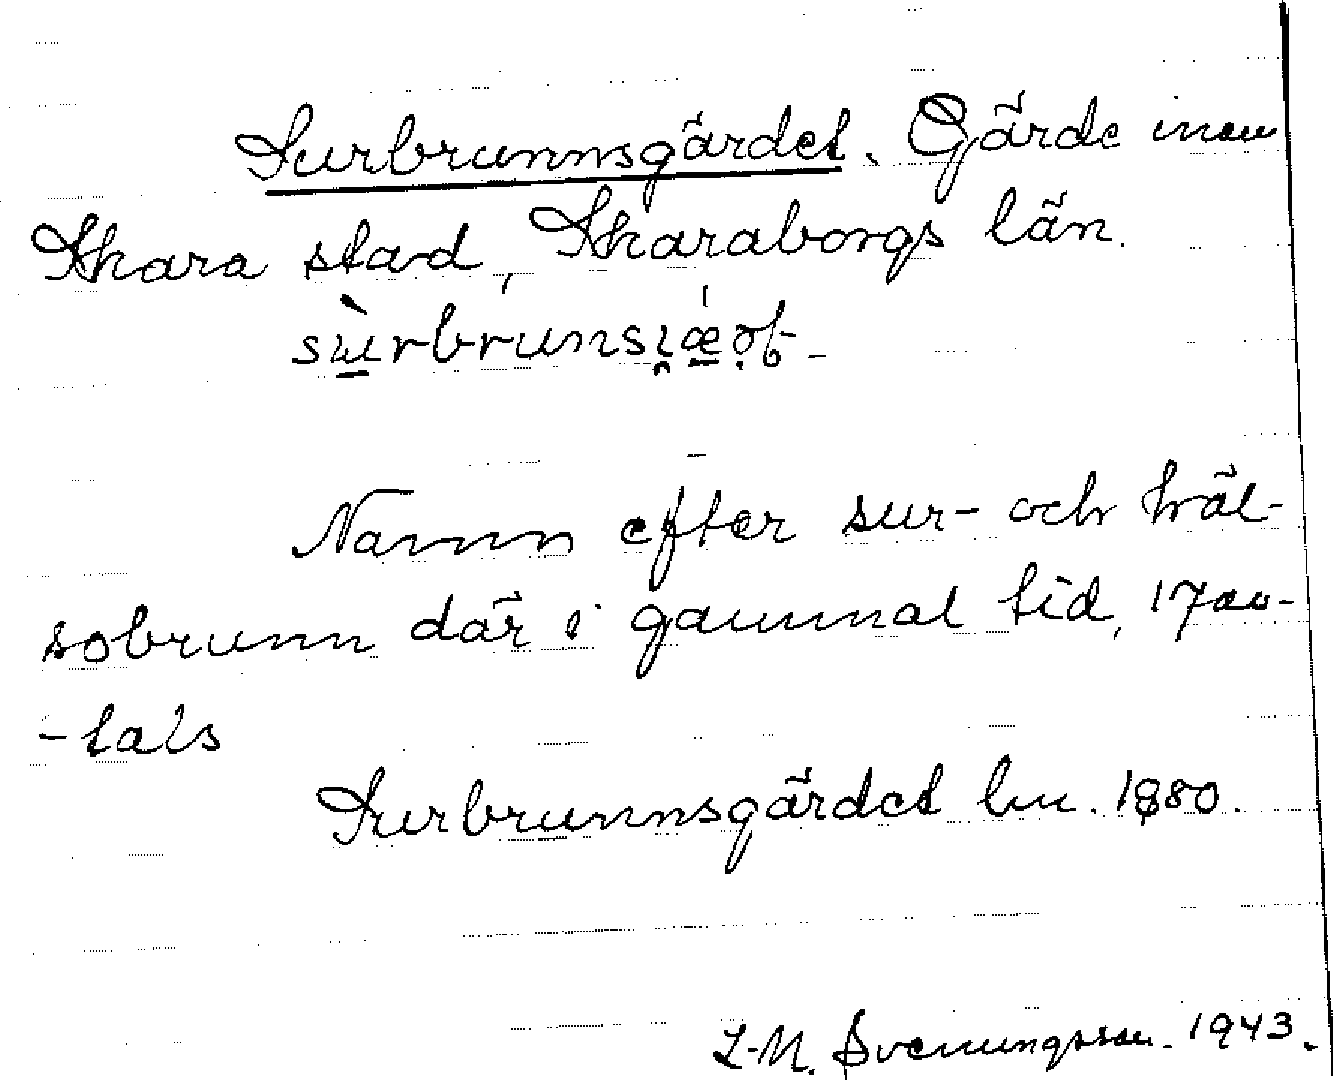 Surbrunnsgärdet. Gärde inom
Skara stad, Skaraborgs län.
Namn efter sur- och häl-
sobrunn där i gammal tid, 1700-
-tals
Surbrunnsgärdet lm. 1880.
L-M. Svenungsson. 1943.